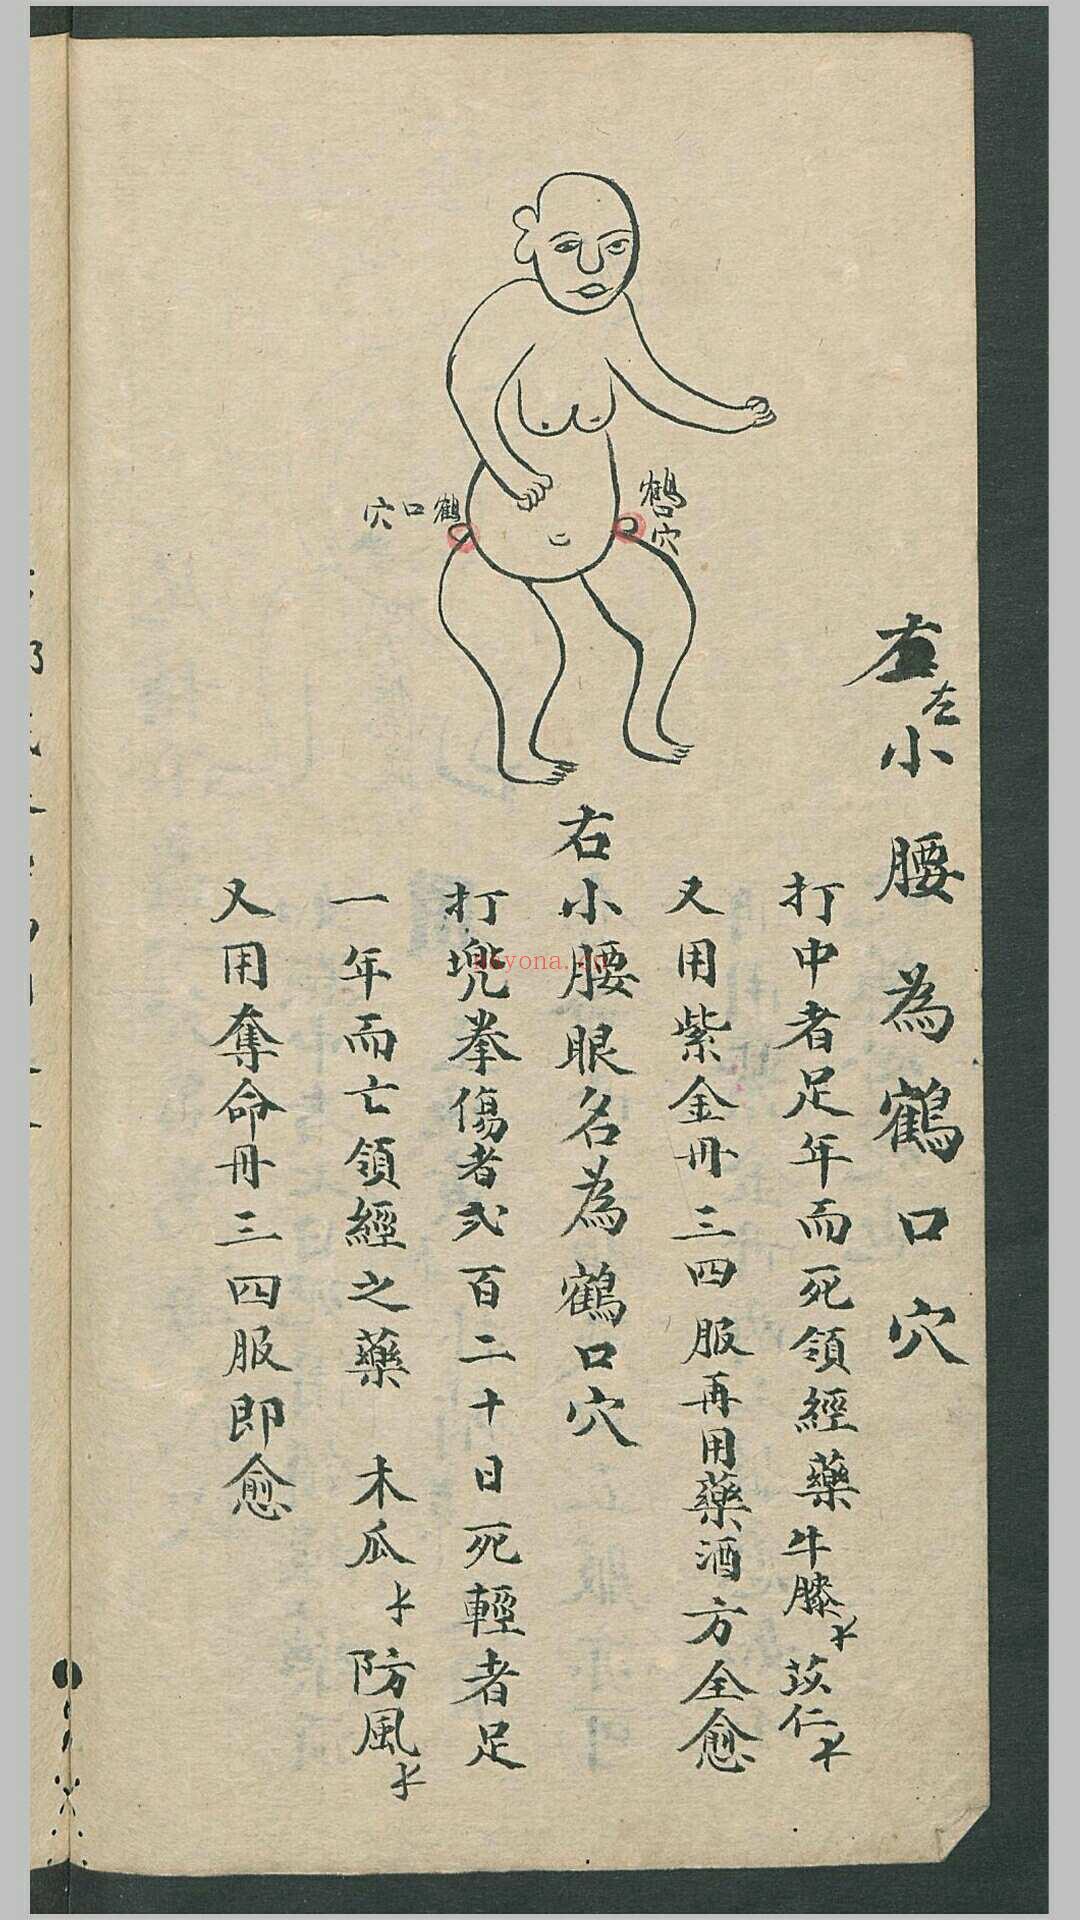 左小腰為鶴口穴
打中者足年而死領經藥牛膝苡仁
又用紫金丹三四服再用藥酒方全愈
右小腰眼名為鶴口穴
打兠拳傷者弍百二十日死輕者足
一年而亡領經之藥 木瓜 防風
又用奪命丹三四服即愈
鶴口穴
鶴口穴